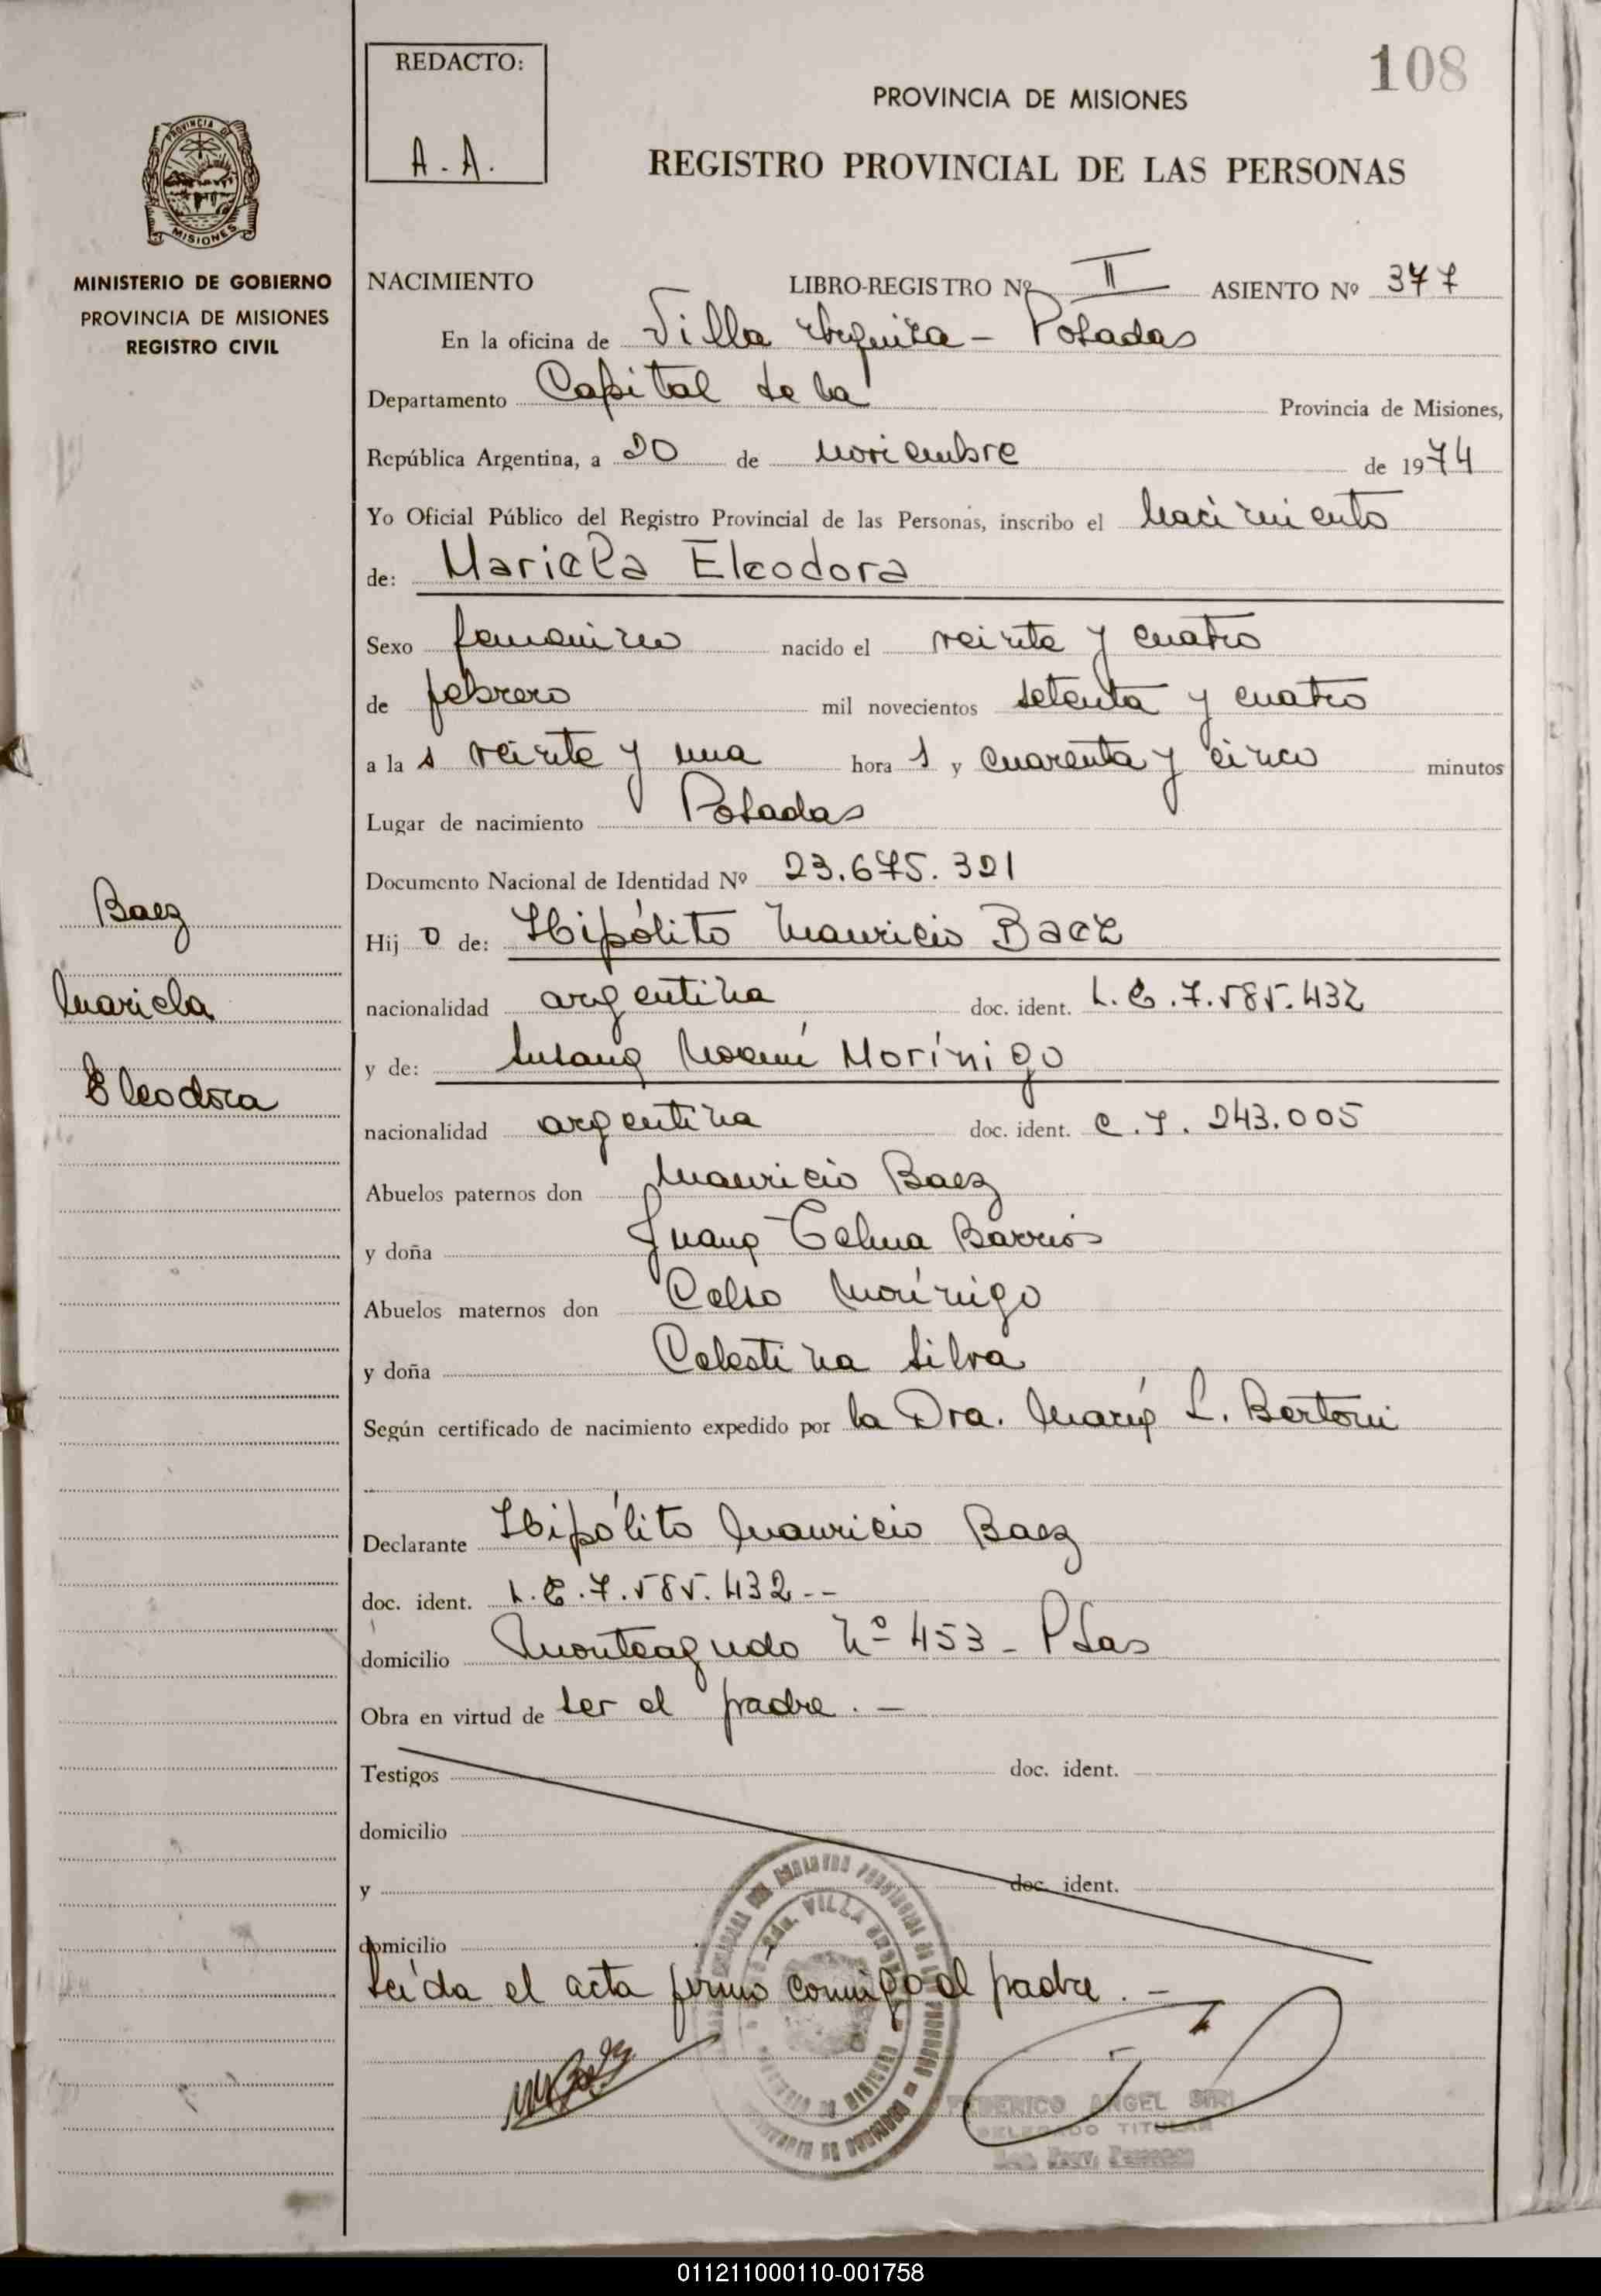 REDACTO:
A. A.
108
PROVINCIA DE MISIONES
REGISTRO PROVINCIAL DE LAS PERSONAS
PROVINCIA DE
MISIONES
MINISTERIO DE GOBIERNO
PROVINCIA DE MISIONES
REGISTRO CIVIL
NACIMIENTO LIBRO-REGISTRO Nº II ASIENTO Nº 377
En la oficina de Villa Urquiza - Posadas
Departamento Capital de la Provincia de Misiones,
República Argentina, a 20 de noviembre de 1974
Yo Oficial Público del Registro Provincial de las Personas, inscribo el nacimiento
de: Mariela Eleodora
Sexo femenino nacido el veinte y cuatro
de febrero mil novecientos setenta y cuatro
a la s veinte y una hora s y cuarenta y cinco minutos
Lugar de nacimiento Posadas
Documento Nacional de Identidad Nº 23.675.321
Baez
Mariela
Eleodora
Hij o de: Hipólito Mauricio Baez
nacionalidad argentina doc. ident. L.E.7.585.432
y de: Susana Noemí Morínigo
nacionalidad argentina doc. ident. C.I. 243.005
Abuelos paternos don Mauricio Baez
y doña Juana Telma Barrios
Abuelos maternos don Celso Morínigo
y doña Celestina Silva
Según certificado de nacimiento expedido por la Dra. María L. Bertoni
Declarante Hipólito Mauricio Baez
doc. ident. L.E.7.585.432--
domicilio Monteagudo Nº 453 - Pdas
Obra en virtud de ser el padre. -
Testigos doc. ident.
domicilio
y doc. ident.
domicilio
Leída el acta firmó conmigo el padre. -
FEDERICO ANGEL SIRI
DELEGADO TITULAR
011211000110-001758